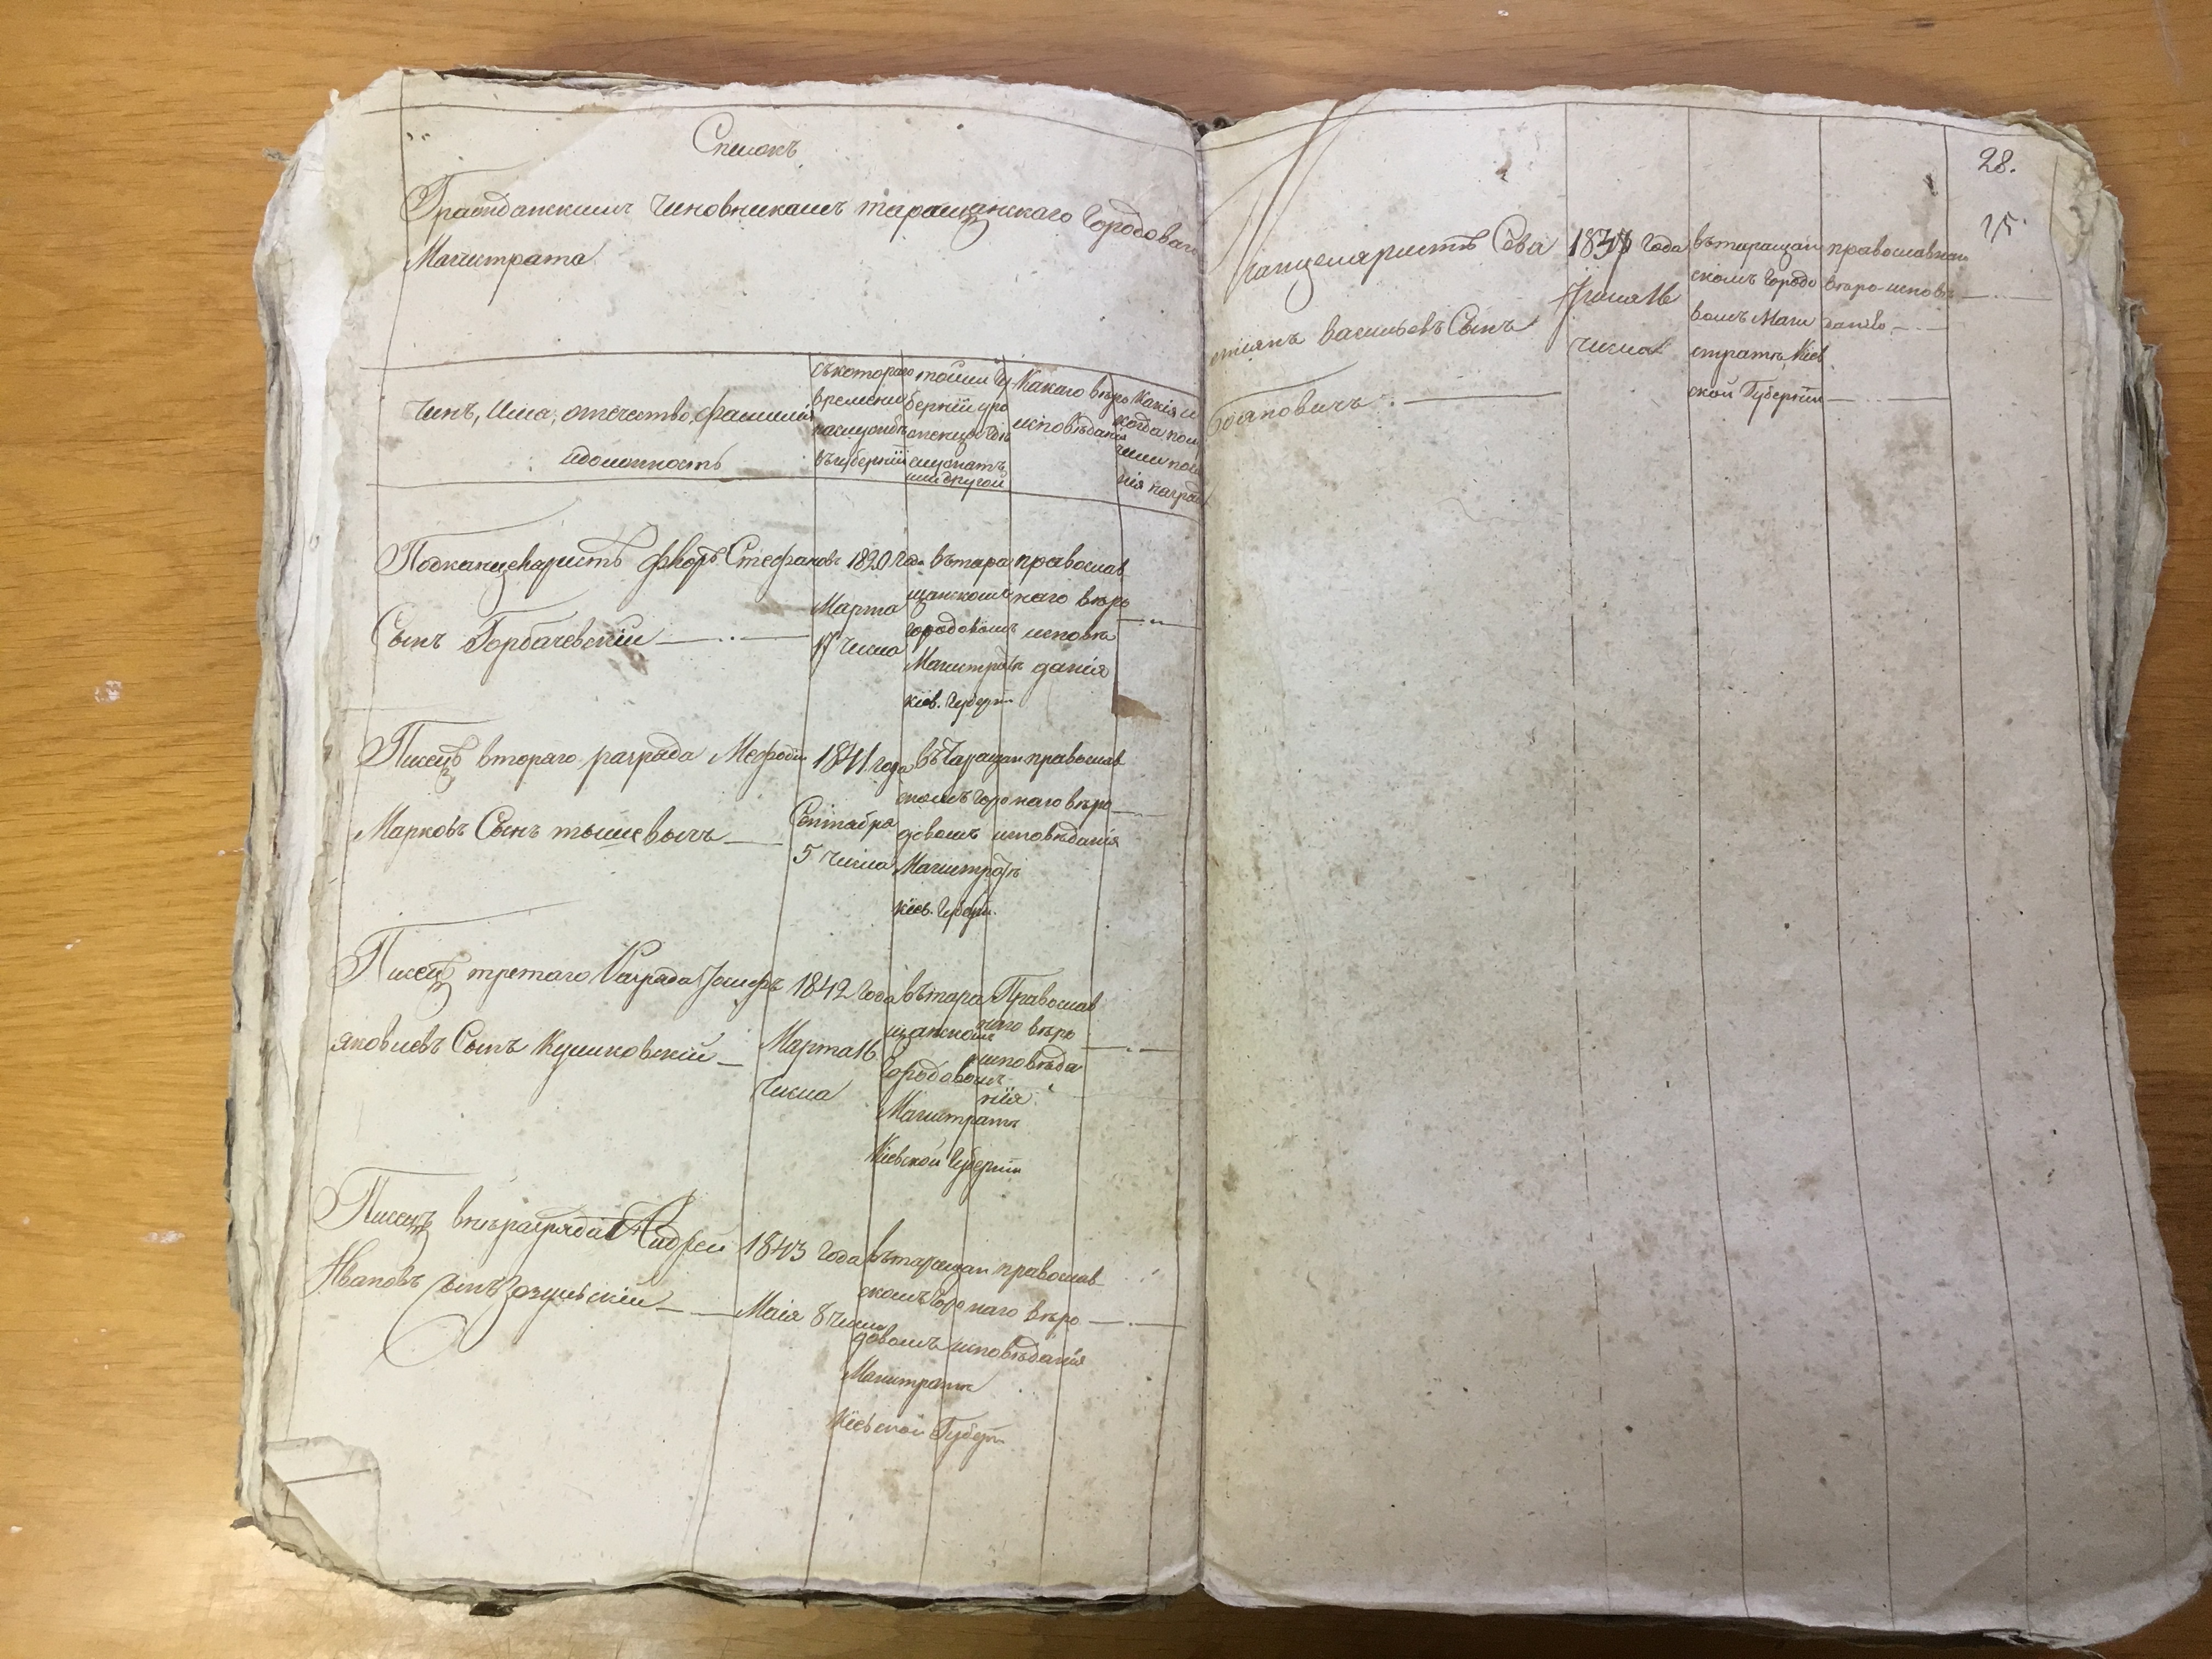 Списокъ
Гражданскимъ Чиновникамъ таращанскаго Городоваго
Магистрата
Чинъ, Имя, отечество, фамилія
идолжность
съкотораго
времени
насцужбѣ
въгуберніи
тойли Гу-
берніи уро
женецъ гдѣ
служатъ
илидругой
Какаго вѣро
исповѣданія
Какія и
когда пол
чили
нія награ
Подканцеляристъ Ѳедоръ Стефановъ
Сынъ Горбачевскій
1820 Года
Марта
17 Числа
въ тара
щанскомъ
городовомъ
Магистратѣ
кіев. Губерн.
православ
наго вѣро
исповѣ
данія
Писецъ втораго разряда Мефодій
Марковъ Сынъ тышевычъ
1841 года
Септабра
5 числа
въ Таращан
скомъ горо
довомъ
Магистратѣ
кіев. Губерн.
православ
наго вѣро
исповѣданія
Писецъ третаго Разряда Іосифъ
яковлевъ Сынъ Куликовскій
1842 Года
Марта 16
числа
въ тара
щанскомъ
Городовомъ
Магистратѣ
Кіевской Губерніи
Православ
наго вѣро
исповѣда
нія
Писецъ внѣразряда Андрей
Ивановъ Сынъ Зозульскій
1843 Года
Маія 8 числа
въ таращан
скомъ Горо
довомъ
Магистратѣ
Кіевской Губерн
православ
наго вѣро
исповѣданія
28.
15.
Канцеляристъ Сева
стіянъ васильевъ Сынъ
Бояновичъ
Года
Іюня 16
числа
въ таращан
скомъ Городо
вомъ Маги
стратѣ, Кіев
ской Губерніи
православнаго
вѣро-исповѣ
данію